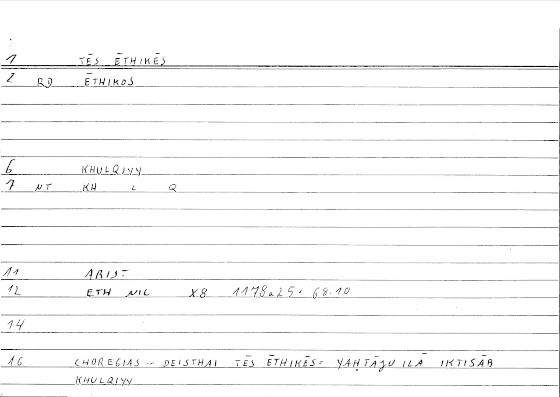 1 TĒS ĒTHIKĒS
2 RD ĒTHIKOS
6 KHULQIYY
7 NT KH L Q
11 ARIST
12 ETH NIC X8 1178a25. 68.10
14
16 CHOREGIAS -- DEISTHAI TĒS ĒTHIKĒS= YAḤTĀJU ILĀ IKTISĀB
KHULQIYY